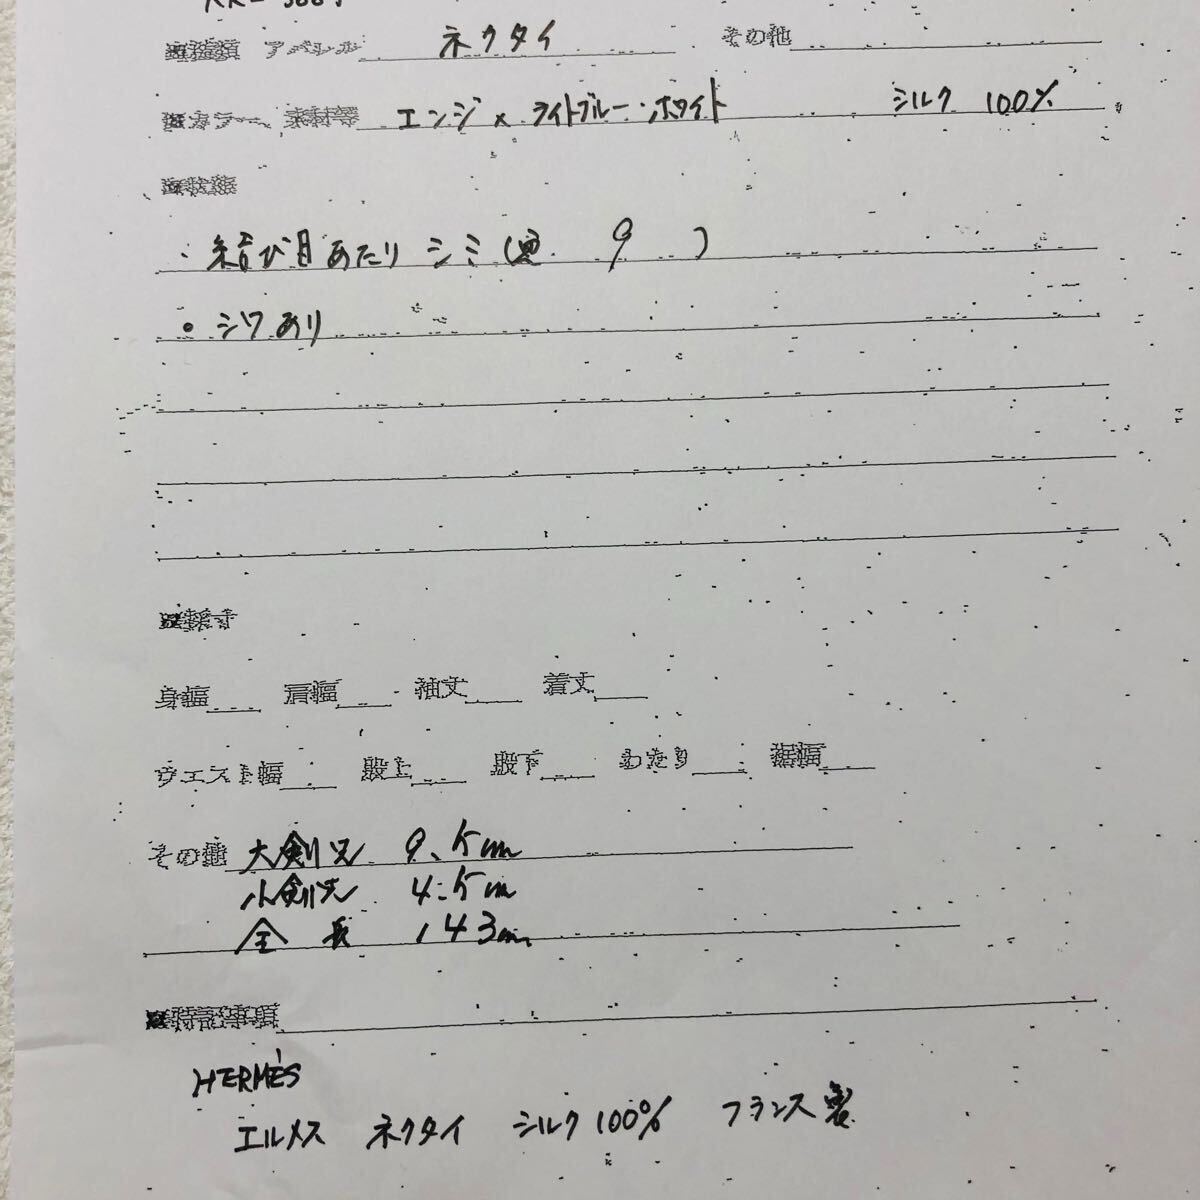 ■種類 アパレル ネクタイ その他
■カラー、素材等 エンジ×ライトブルー・ホワイト シルク 100%
■状態
・結び目あたり シミ ( 9 )
・シワあり
■採寸
身幅 肩幅 袖丈 着丈
ウエスト幅 股上 股下 わたり 裾幅
その他 大剣先 9.5cm
小剣先 4.5cm
全長 143cm
■特記事項
HERMÈS
エルメス ネクタイ シルク100% フランス製